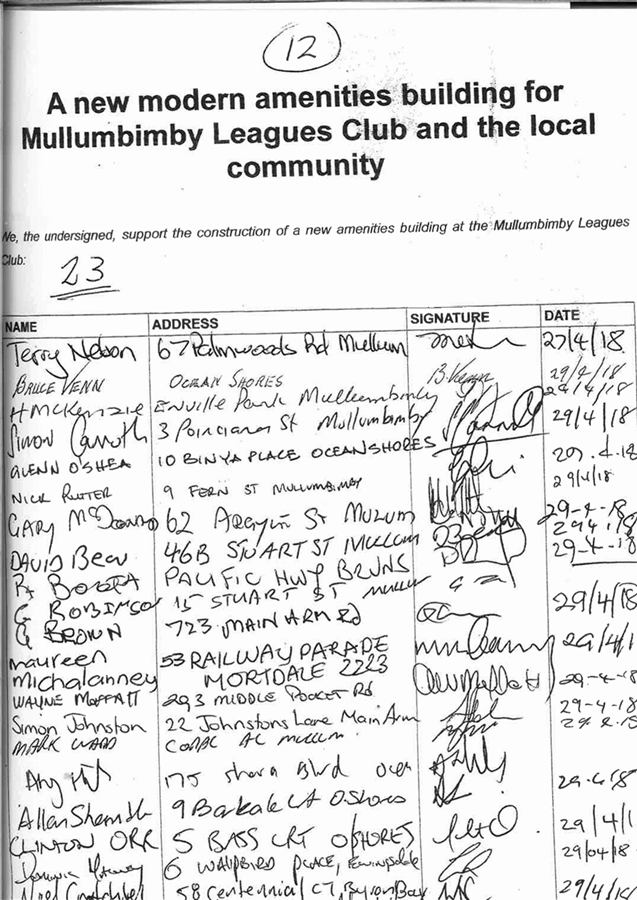 12
A new modern amenities building for
Mullumbimby Leagues Club and the local
community
We, the undersigned, support the construction of a new amenities building at the Mullumbimby Leagues
Club:
23
NAME ADDRESS SIGNATURE DATE
Terry Nelson 67 Palmwoods Rd Mullum 27/4/18
BRUCE VENN OCEAN SHORES B.Venn 29/4/18
H MCKENZIE Park Mullumbimby 29/4/18
Simon 3 Poinciana St Mullumbimby 29/4/18
GLENN O'SHEA 10 BINYA PLACE OCEAN SHORES 29.4.18
NICK 9 FERN ST MULLUMBIMBY 29/4/18
GARY 62 St MULLUM 29-4-18
DAVID 46B STUART ST MULLUM 29.4.18
PACIFIC HWY BRUNS 29-4-18
G ROBINSO 15 STUART ST MULLUM
G BROWN 723 MAIN ARM RD 29/4/18
maureen 53 RAILWAY PARADE 29/4/1
Michalanney MORTDALE 2223
WAYNE MOFFATT 293 MIDDLE POCKET RD 29-4-18
Simon Johnston 22 Johnstons Lane Main Arm 29-4-18
MARK WARD MULLUM
175 Blvd Ocean 29.4.18
Allan O Shores
CLINTON ORR 5 BASS CRT O/SHORES 29/4/1
6 PLACE, Ewingsdale 29/04/18
58 Centennial CT, Byron Bay 29/4/18